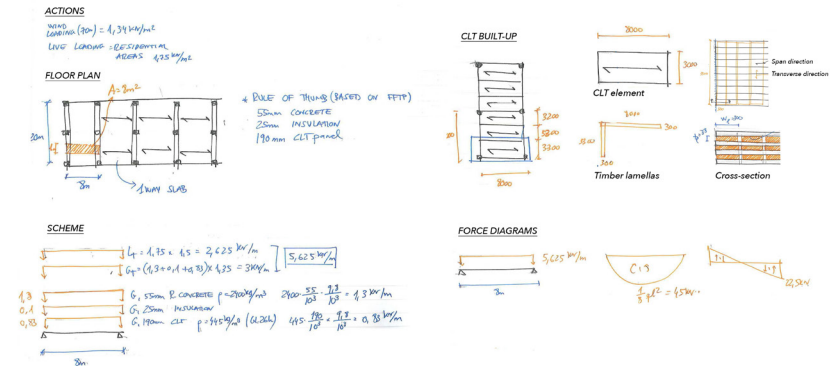 ACTIONS
WIND
LOADING (70m) = 1,34 kN/m²
LIVE LOADING = RESIDENTIAL
AREAS 1,75 kN/m²
FLOOR PLAN
A=8m²
8m
1 WAY SLAB
* RULE OF THUMB (BASED ON FFTP)
55mm CONCRETE
25mm INSULATION
190mm CLT panel
SCHEME
= 1,75 x 1,5 = 2,625 kN/m
= (1,3+0,1+0,83) x 1,35 = 3 kN/m
5,625 kN/m
1,3
0,1
0,83
G, 55mm R CONCRETE ρ=2400 kg/m³ 2400 · 55/10³ · 9,8/10³ = 1,3 kN/m
G, 25mm INSULATION
G, 190mm CLT ρ=445 kg/m³ (GL26h) 445 · 190/10³ × 9,8/10³ = 0,83 kN/m
8m
CLT BUILT-UP
3200
3200
3200
8000
8000
3000
CLT element
Span direction
Transverse direction
8000
300
300
Timber lamellas
Cross-section
FORCE DIAGRAMS
5,625 kN/m
8m
1/8 ql² = 45 kN
22,5kN